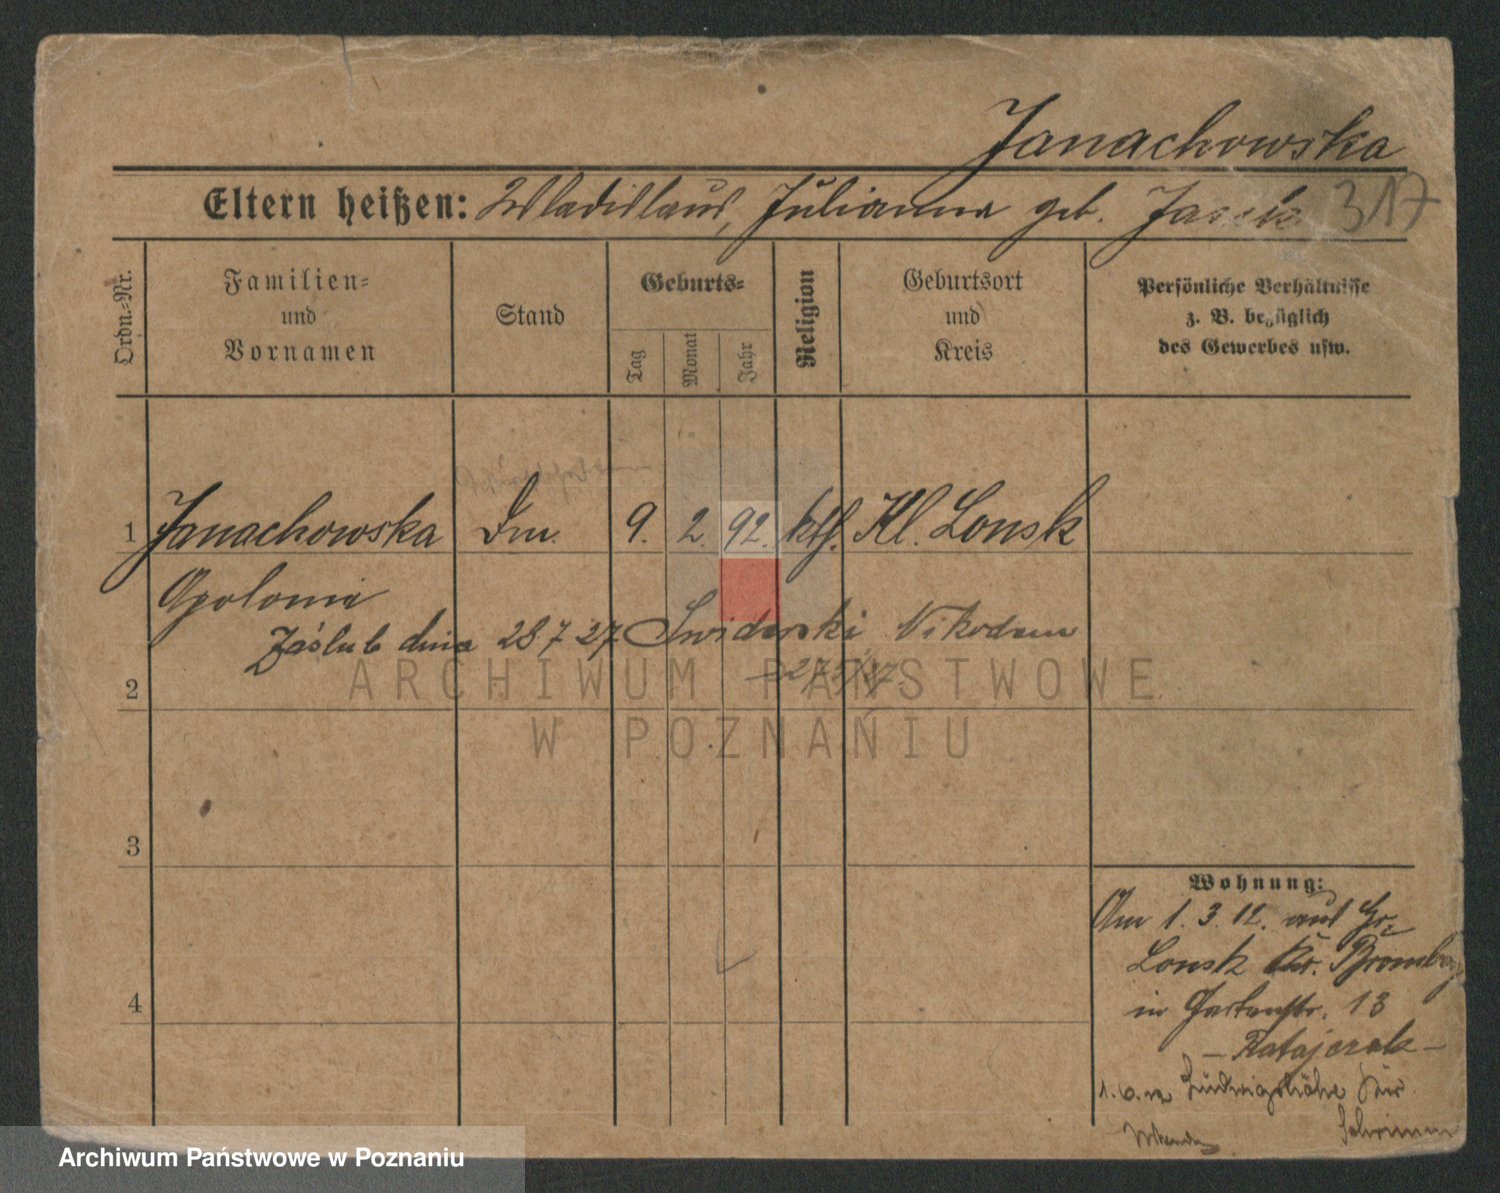 Janachowska
Eltern heißen: Wladislaus, Julianna geb. Jasek 317
Ordn.-Nr.
Familien-
und
Vornamen
Stand
Geburts-
Tag
Monat
Jahr
Religion
Geburtsort
und
Kreis
Persönliche Verhältnisse
z. B. bezüglich
des Gewerbes usw.
1 Janachowska Dm. 9. 2. 92. kth. Kl. Lonsk
Apolonia
Záslub dnia 28.7 27 Swiderski Nikodem
2
ARCHIWUM PAŃSTWOWE
W POZNANIU
3
Wohnung:
Am 1. 3. 12. aus Gr.
Lonsk Kr. Bromberg
in Gartenstr. 13
4
– Ratajczak –
Ludwigshöhe Kr.
Schrimm
Archiwum Państwowe w Poznaniu